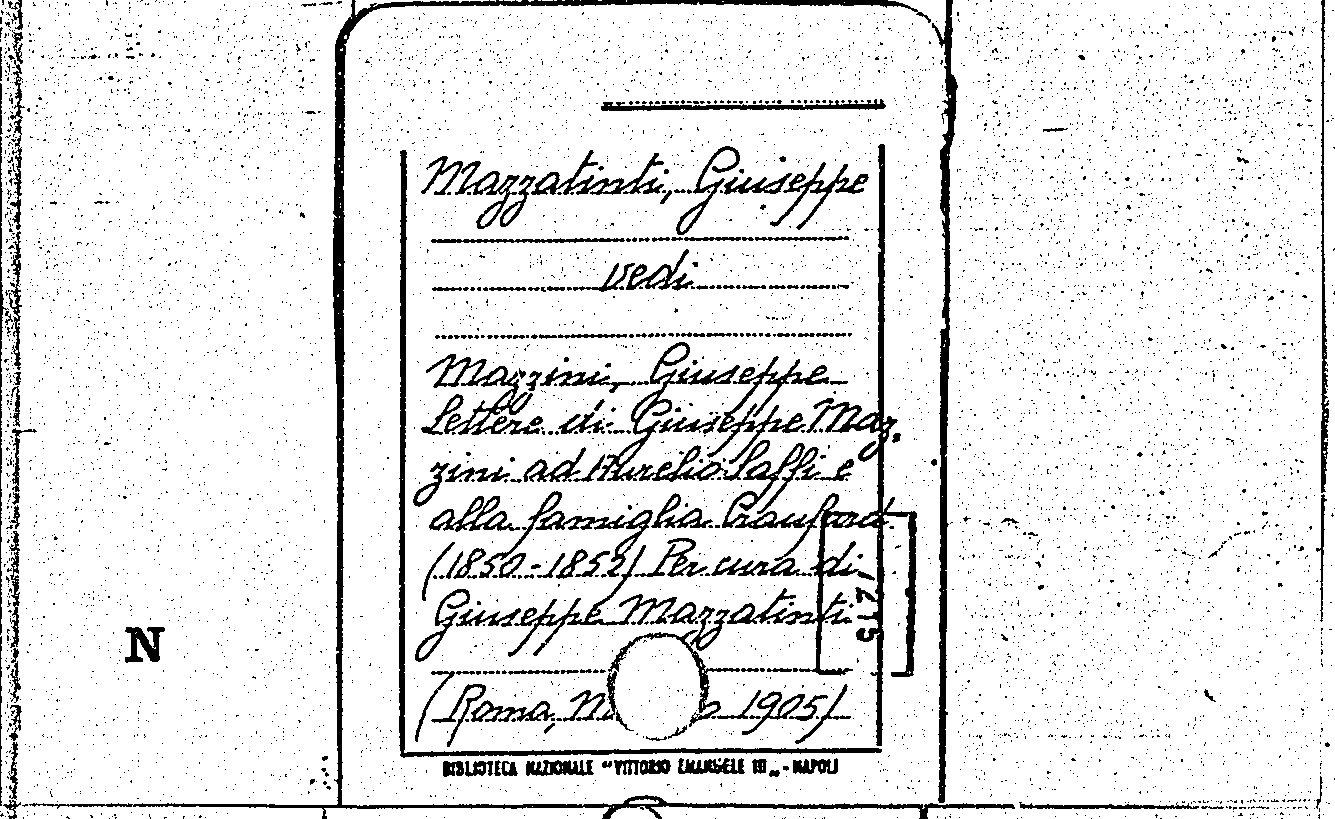 Mazzatinti, Giuseppe
vedi
Mazzini, Giuseppe
Lettere di Giuseppe Maz-
zini ad Aurelio Saffi e
alla famiglia Crauford
(1850-1852) Per cura di
Giuseppe Mazzatinti
(Roma, 1905)
BIBLIOTECA NAZIONALE "VITTORIO EMANUELE III„ - NAPOLI
N